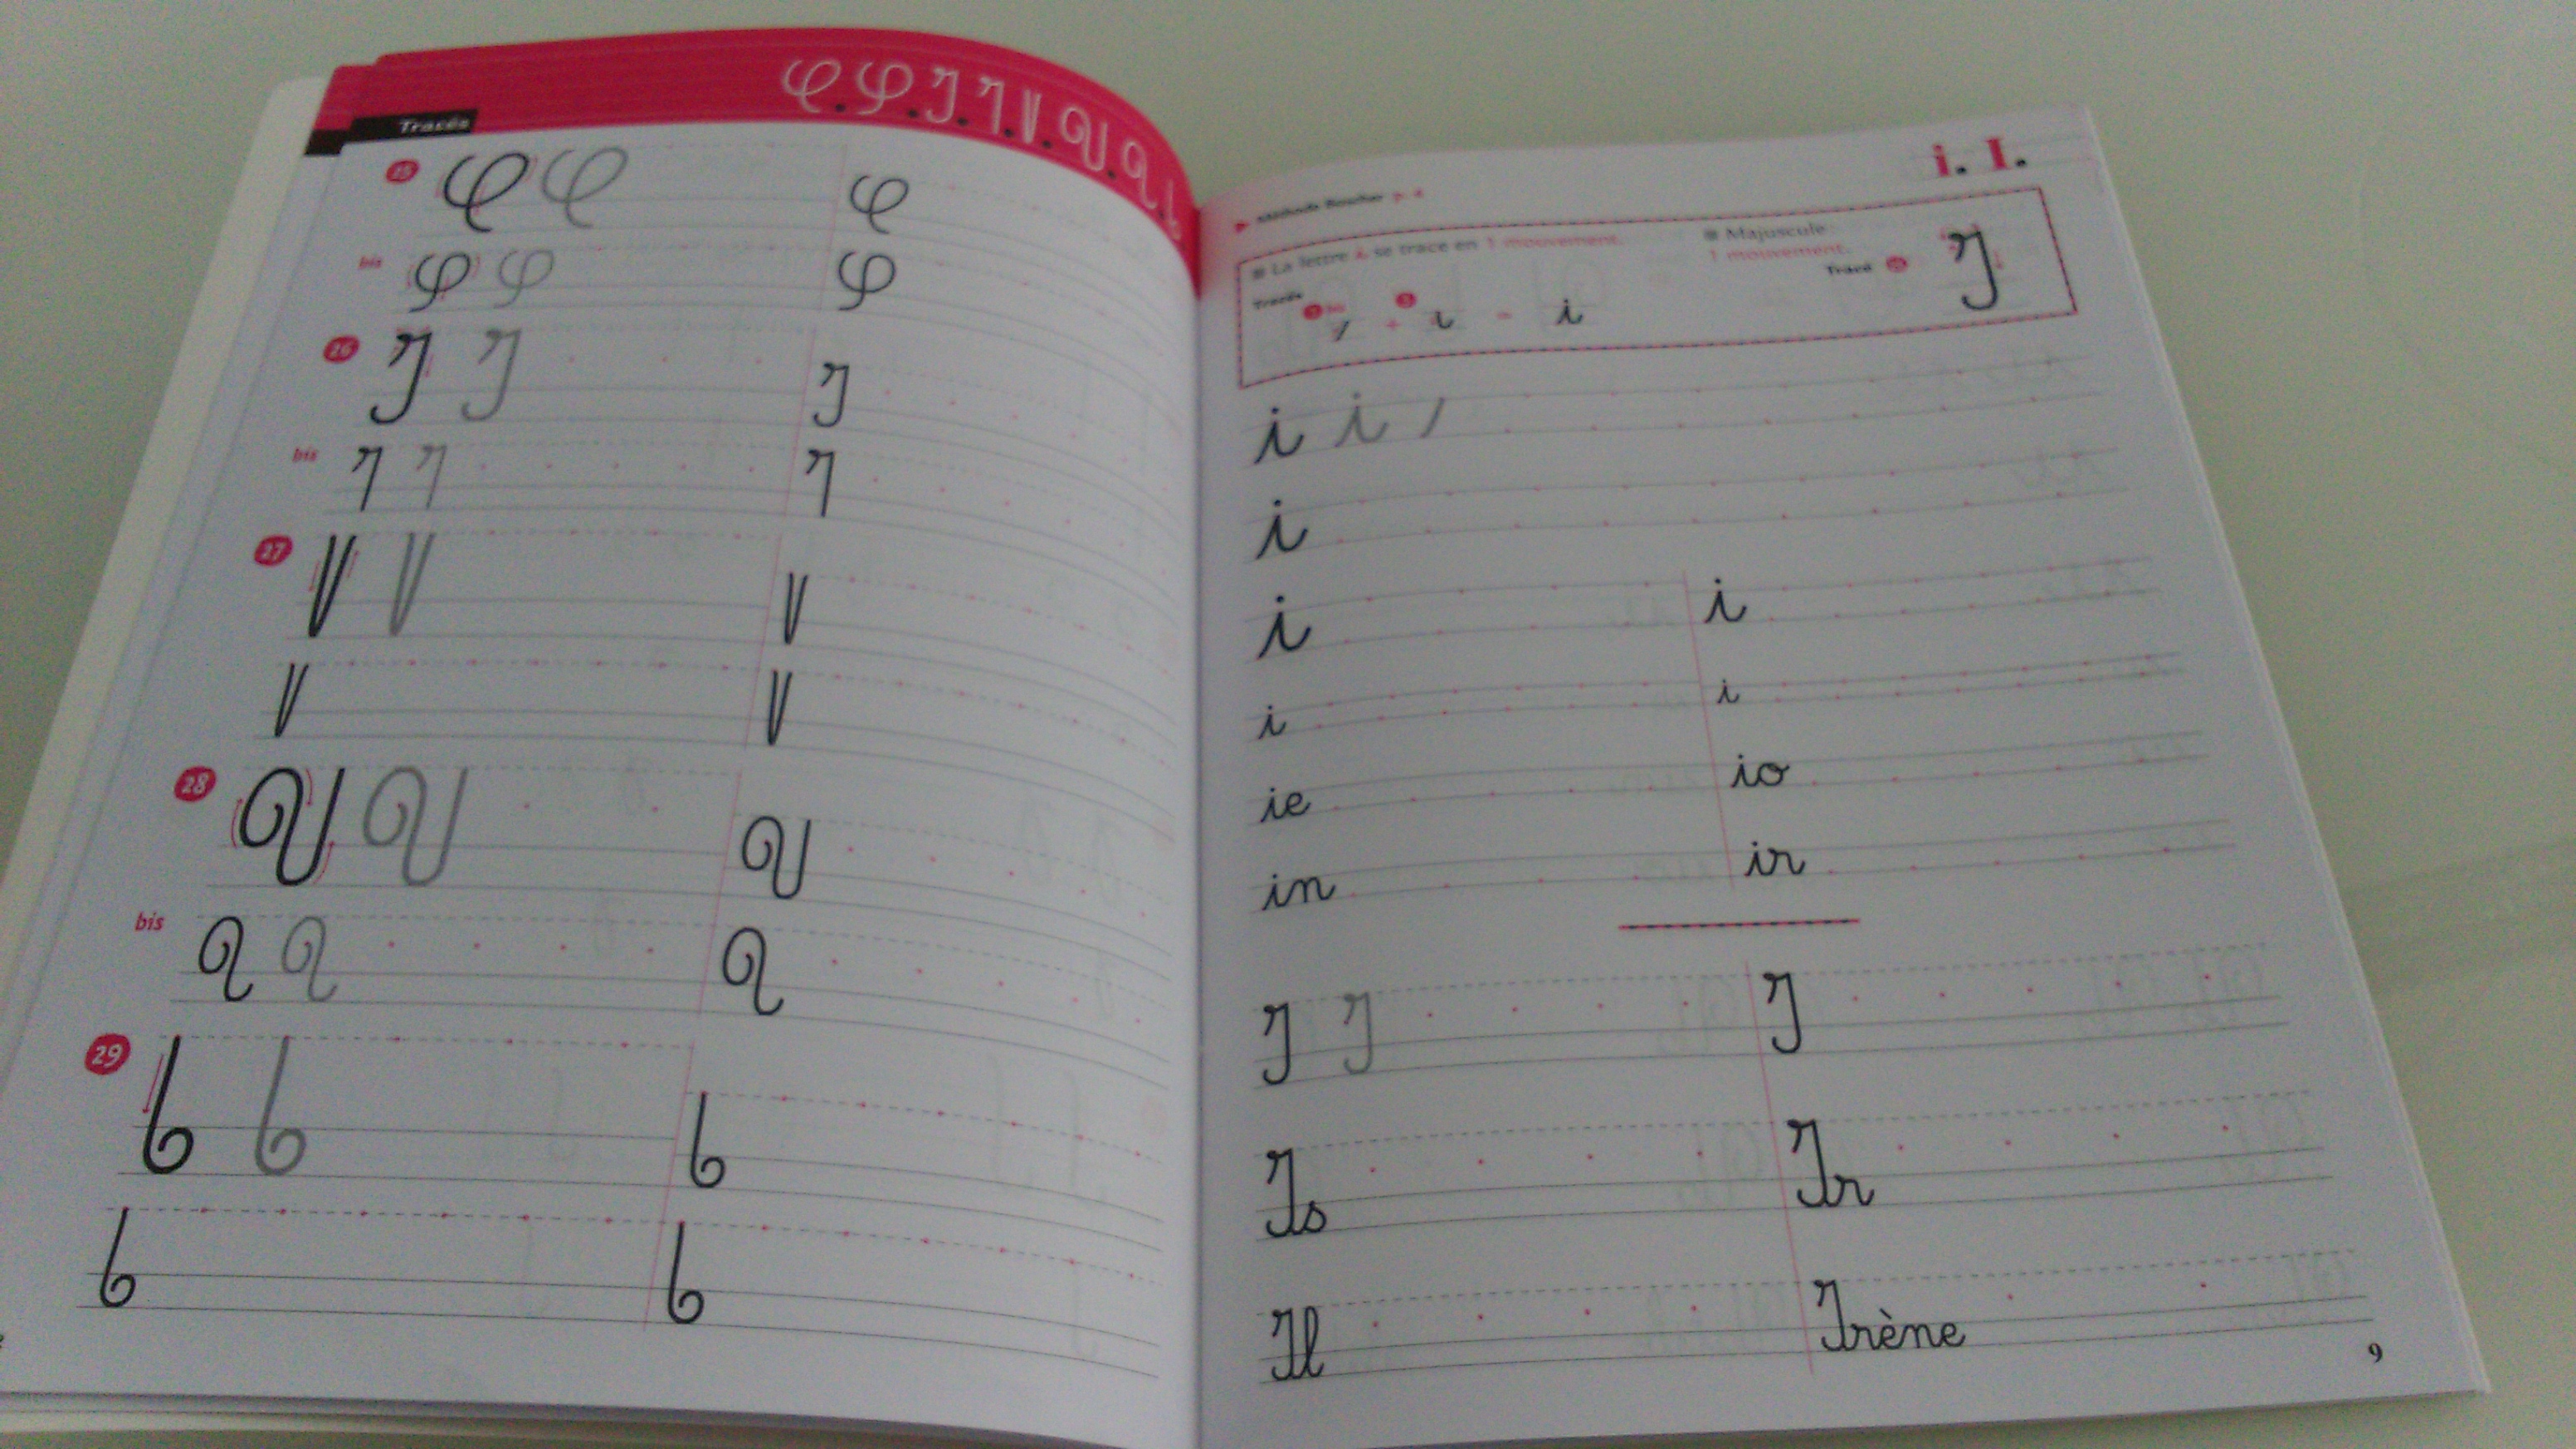 Tracés
25
bis
26
bis
27
28
bis
29
i. I.
Méthode Boscher p. 4
La lettre i se trace en 1 mouvement.
Majuscule
1 mouvement.
Tracés bis + 3 = i
Tracé 26 I
i i
i
i i
i i
ie io
in ir
I I I
Is Ir
Il Irène
9